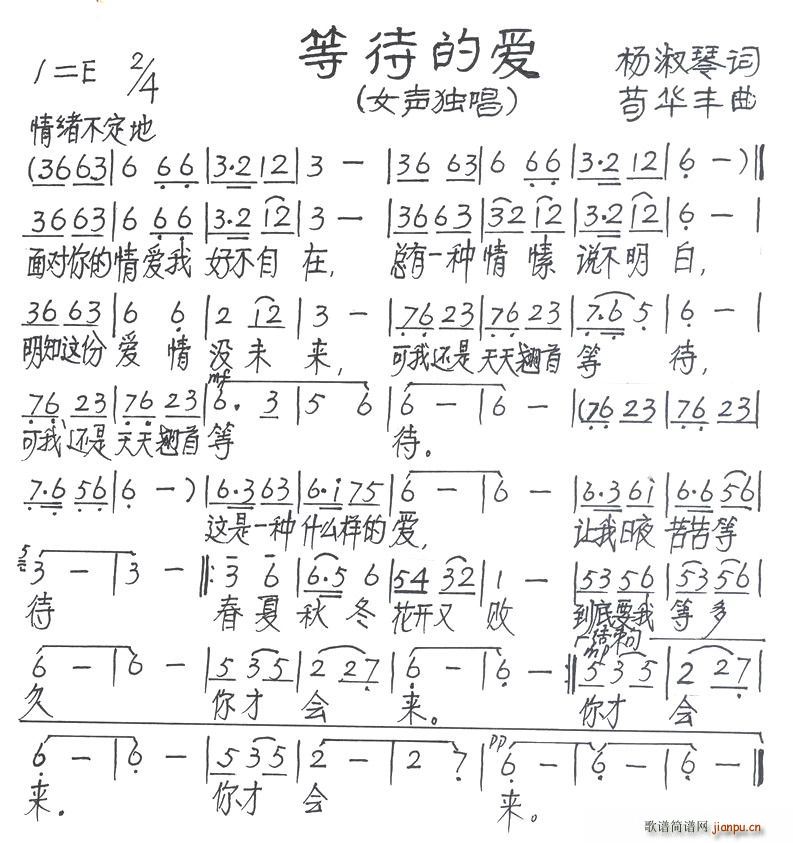 等待的爱
(女声独唱)
1=E 2/4
杨淑琴词
苟华丰曲
情绪不定地
(36 63|6 66|3·2 12|3 —|36 63|6 66|3·2 12|6 —)‖
36 63|6 66|3·2 12|3 —|36 63|32 12|3·2 12|6 —|
面对你的情爱我 好不自在, 总有一种情愫 说不明白,
36 63|6 6|2 12|3 —|76 23|76 23|7·6 5|6 —|
明知这份爱情没未来, 可我还是天天翘首等待,
mf
76 23|76 23|6· 3|5 6|6 —|6 —|(76 23|76 23|
可我还是天天翘首等 待。
7·6 56|6 —)|6·3 63|6·i 75|6 —|6 —|6·3 6i|6·6 56|
这是一种什么样的爱, 让我日夜苦苦等
5 3 —|3 —‖:3 6|6·5 6|54 32|1 —|53 56|53 56|
待 春夏秋冬花开又败 到底要我等多
结束句
mp
6 —|6 —|5 35|2 27|6 —|6 —:‖5 35|2 27|
久 你才会来。 你才会
pp
6 —|6 —|5 35|2 —|2 7|6 —|6 —|6 —‖
来。 你才会 来。
歌谱简谱网
jianpu.cn